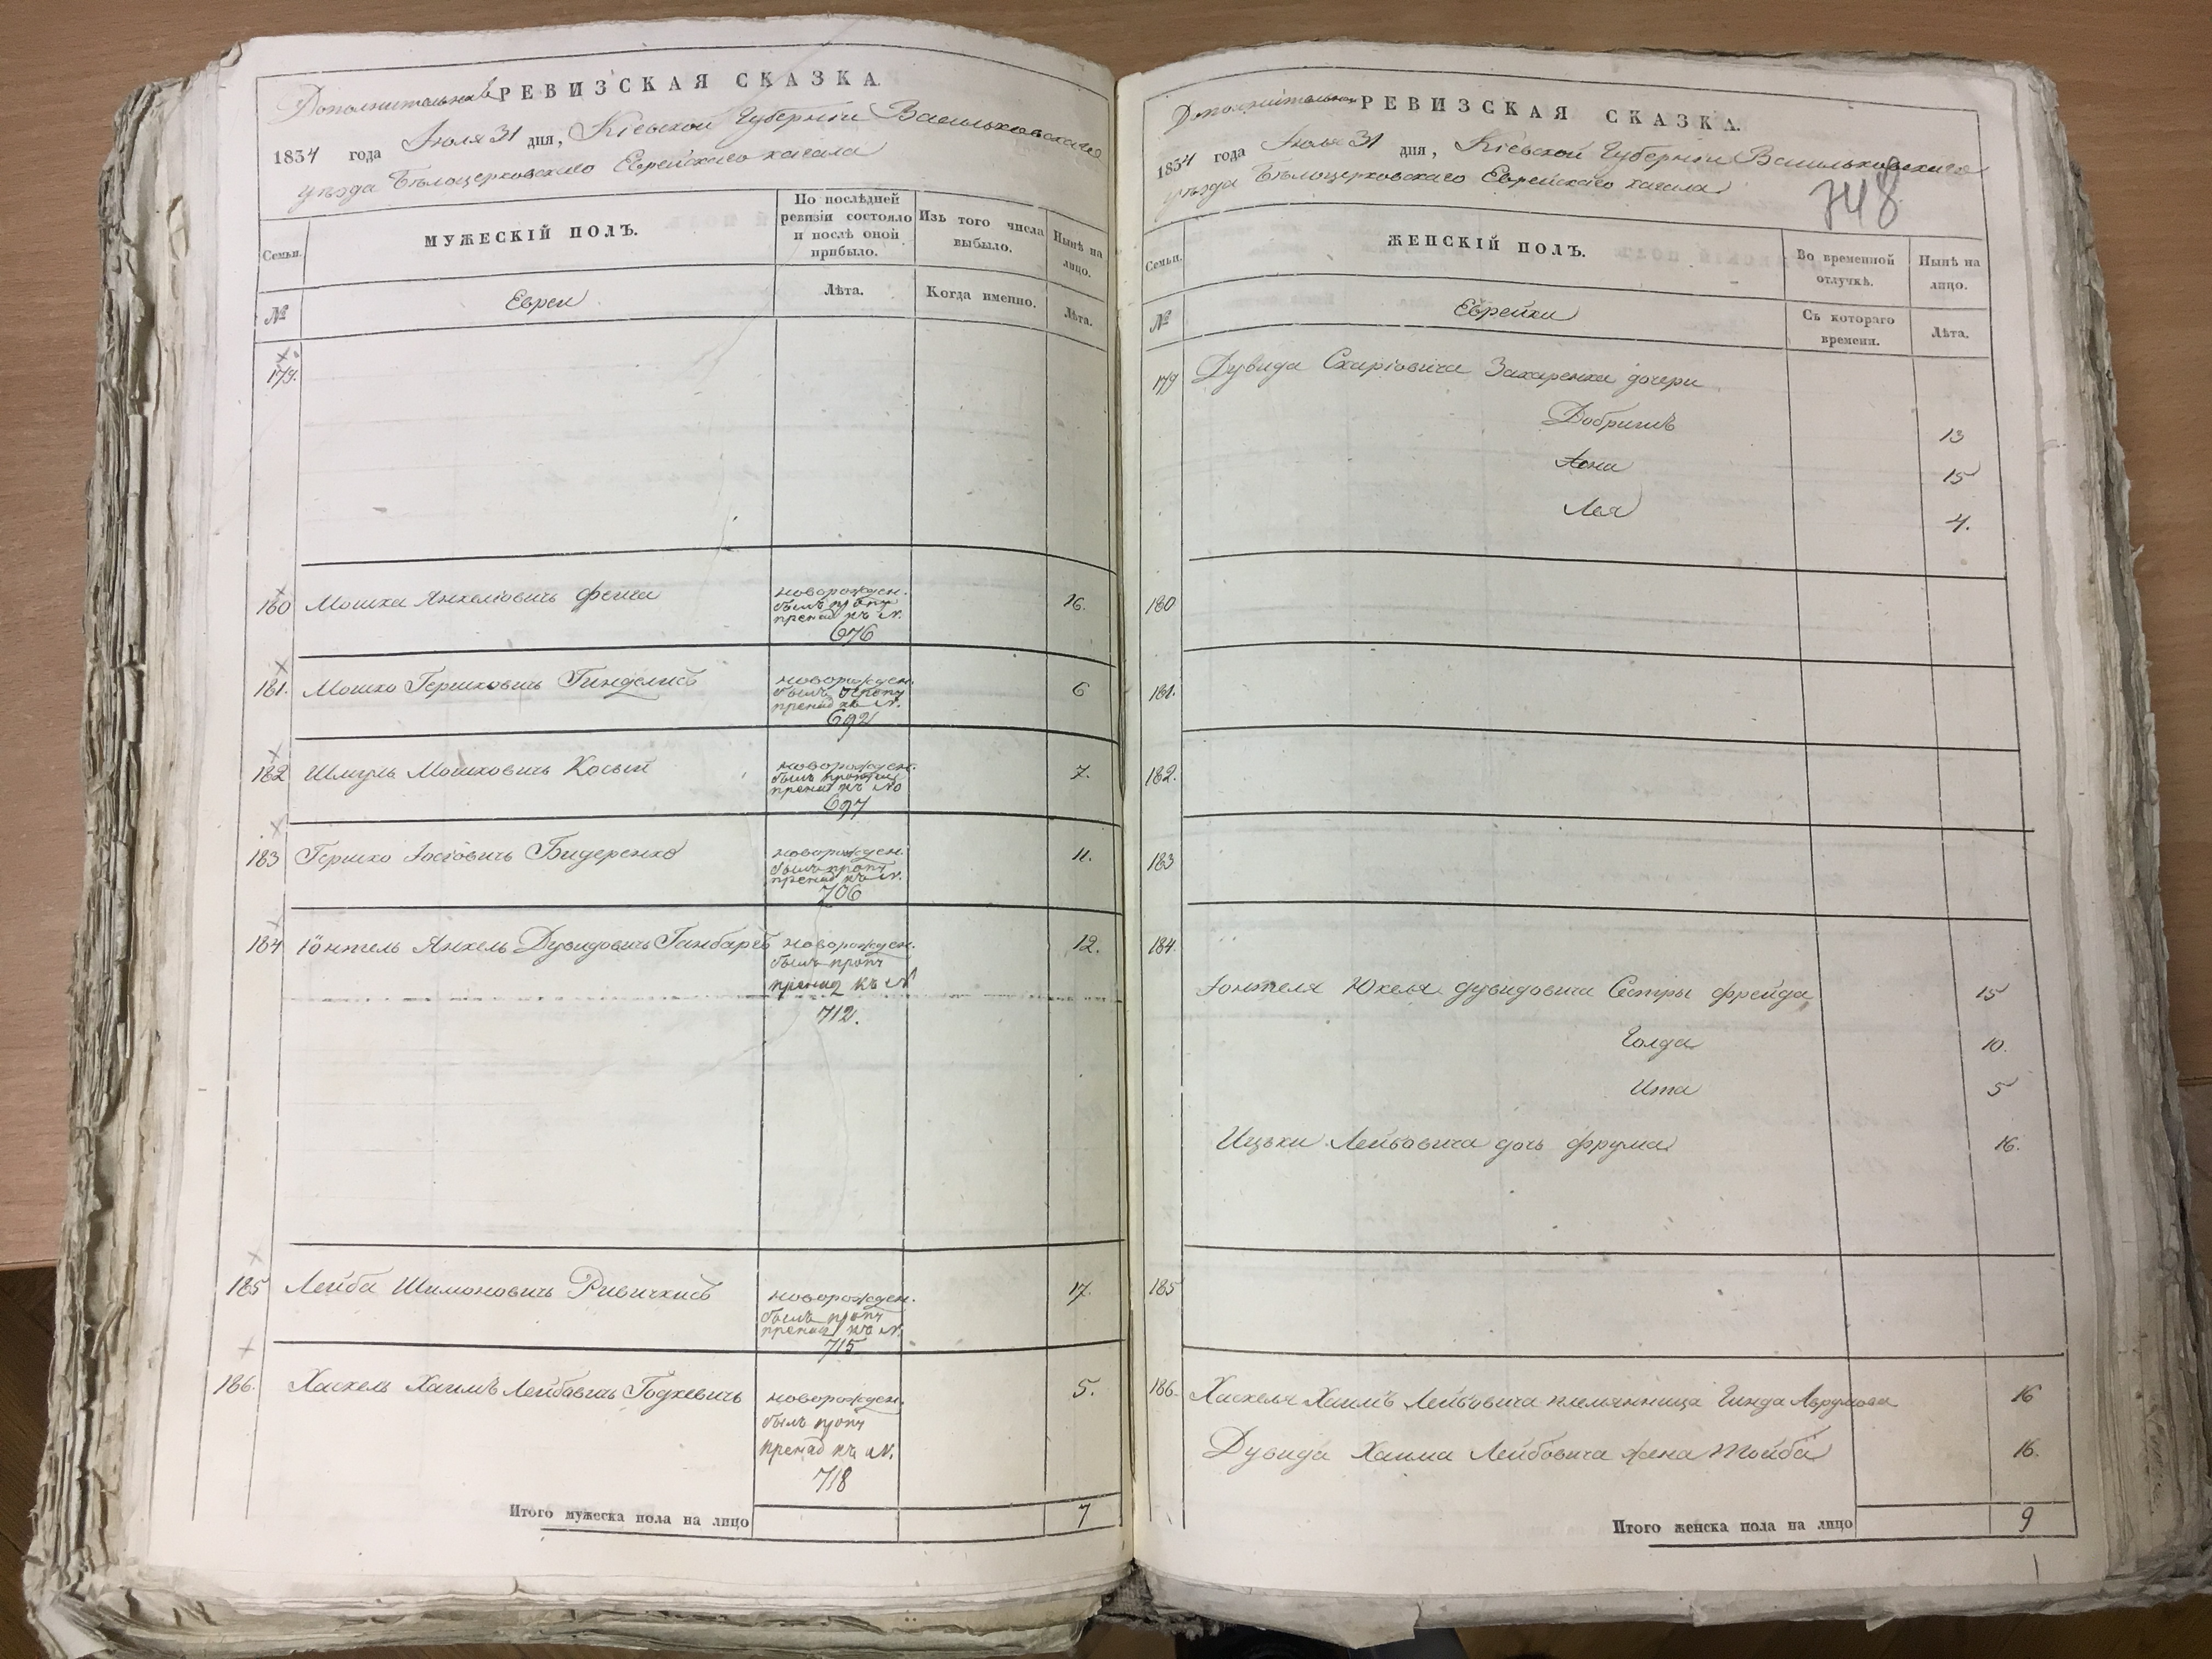 Дополнительная РЕВИЗСКАЯ СКАЗКА.
1834 года Июля 31 дня, Кіевской Губерніи Васильковскаго
уѣзда Бѣлоцерковскаго Еврейскаго кагала
Семьи.
МУЖЕСКІЙ ПОЛЪ.
По послѣдней ревизіи состояло и послѣ оной прибыло.
Изъ того числа выбыло.
Нынѣ на лицо.
№
Евреи
Лѣта.
Когда именно.
Лѣта.
179.
180 Мошка Анкелювичь новорожден. 16.
былъ проп
пренад къ №.
676
181. Мошко Гершковичь новорожден. 6
былъ
пренад къ №.
692
182 Шмуль Мошковичь Косый новорожден. 7.
былъ
пренад къ №
697
183 Гершко Іосіовичь Бидеренко новорожден. 11.
былъ проп
пренад къ №.
706
184 Іонтель Анкель Дувидовичь новорожден. 12.
былъ проп
пренад къ №
712.
185 Лейба Шимоновичь новорожден. 17.
былъ проп
пренад къ №.
715
186. Хаскель Хаимъ Лейбовичь новорожден. 5.
былъ проп
пренад къ №.
718
Итого мужеска пола на лицо 7
Дополнительная РЕВИЗСКАЯ СКАЗКА.
1834 года Июля 31 дня, Кіевской Губерніи Васильковскаго
уѣзда Бѣлоцерковскаго Еврейскаго кагала
748
Семьи.
ЖЕНСКІЙ ПОЛЪ.
Во временной отлучкѣ.
Нынѣ на лицо.
№
Еврейки
Съ котораго времени.
Лѣта.
179 Дувида Схаріовича Захаренка дочери
13
15
Лея 4.
180
181.
182.
183
184.
Іонтеля Юкеля Дувидовича Сестры Фрейда 15
Голда 10.
Ита 5
Ицьки Лейбовича дочь Фрума 16.
185
186. Хаскеля Хаимъ Лейбовича племянница Гинда Аврумова 16
Дувида Хаима Лейбовича жена Тойба 16.
Итого женска пола на лицо 9